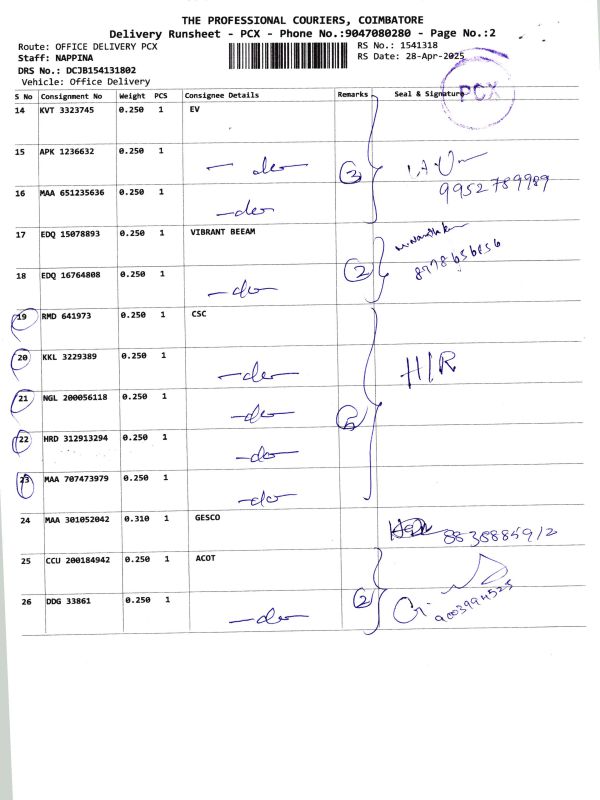 THE PROFESSIONAL COURIERS, COIMBATORE
Delivery Runsheet - PCX - Phone No.:9047080280 - Page No.:2
Route: OFFICE DELIVERY PCX
RS No.: 1541318
Staff: NAPPINA
RS Date: 28-Apr-2025
DRS No.: DCJB154131802
Vehicle: Office Delivery
PCX
S No Consignment No Weight PCS Consignee Details Remarks Seal & Signature
14 KVT 3323745 0.250 1 EV
15 APK 1236632 0.250 1
-do- 3
9952789989
16 MAA 651235636 0.250 1
-do-
17 EDQ 15078893 0.250 1 VIBRANT BEEAM
18 EDQ 16764808 0.250 1 2 8978656856
-do-
19 RMD 641973 0.250 1 CSC
20 KKL 3229389 0.250 1 H/R
-do-
21 NGL 200056118 0.250 1
-do- 5
22 HRD 312913294 0.250 1
-do-
23 MAA 707473979 0.250 1
-do-
24 MAA 301052042 0.310 1 GESCO
8838885912
25 CCU 200184942 0.250 1 ACOT
26 DDG 33861 0.250 1 2
-do-